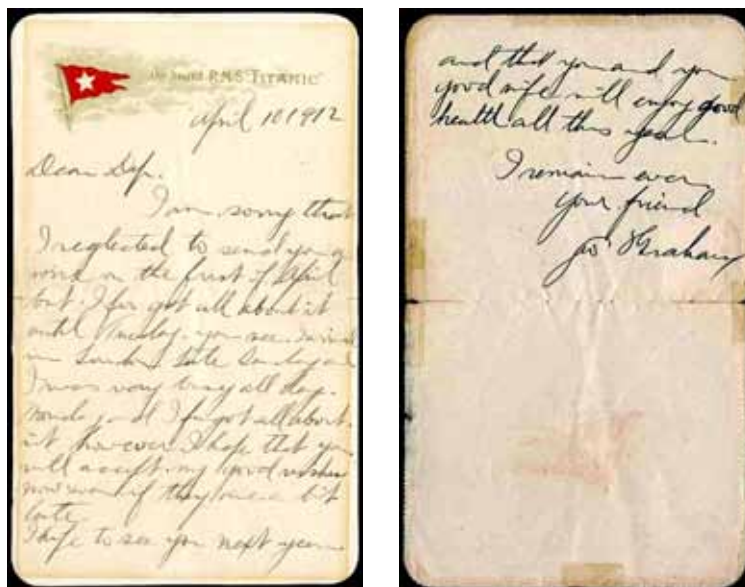 On board R.M.S. "TITANIC"
April 10 1912
Dear
I am sorry that
I neglected to send you a
word on the first of April
but I for got all about it
until Tuesday. you see I arrived
in London late Sunday and
I was very busy all day
Monday and I forgot all about
it however I hope that you
will accept my good wishes
now even if they are a bit
late.
I hope to see you next year
and that you and you
good wife will enjoy good
health all this year.
I remain ever
your friend
Graham